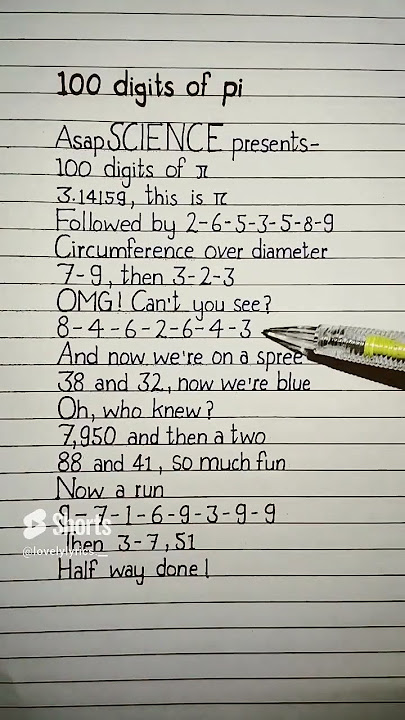 100 digits of pi
AsapSCIENCE presents-
100 digits of π
3.14159, this is π
Followed by 2-6-5-3-5-8-9
Circumference over diameter
7-9, then 3-2-3
OMG! Can't you see?
8-4-6-2-6-4-3
And now we're on a spree
38 and 32, now we're blue
Oh, who knew?
7,950 and then a two
88 and 41, so much fun
Now a run
9-7-1-6-9-3-9-9
Shorts
Then 3-7, 51
@lovelylyrics__
Half way done!